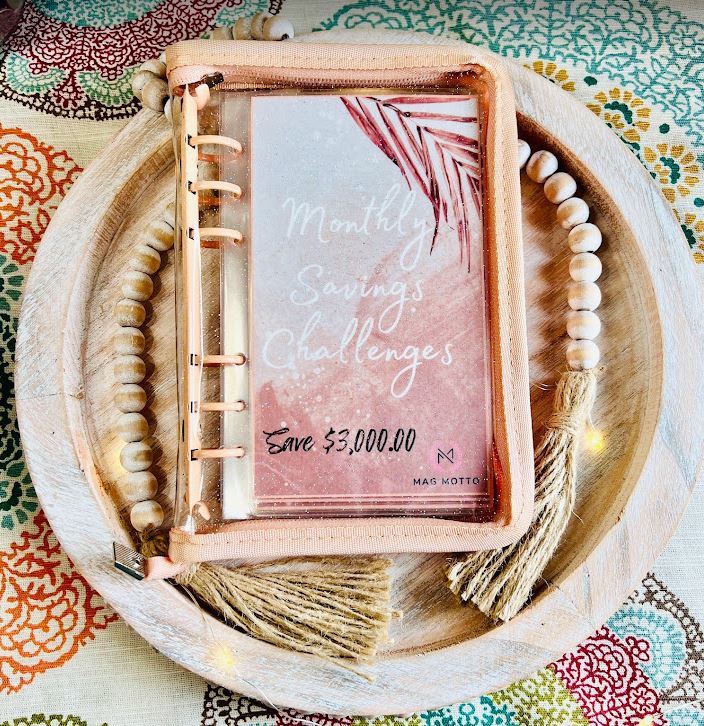 Monthly
Savings
Challenges
Save $3,000.00
M
MAG MOTTO